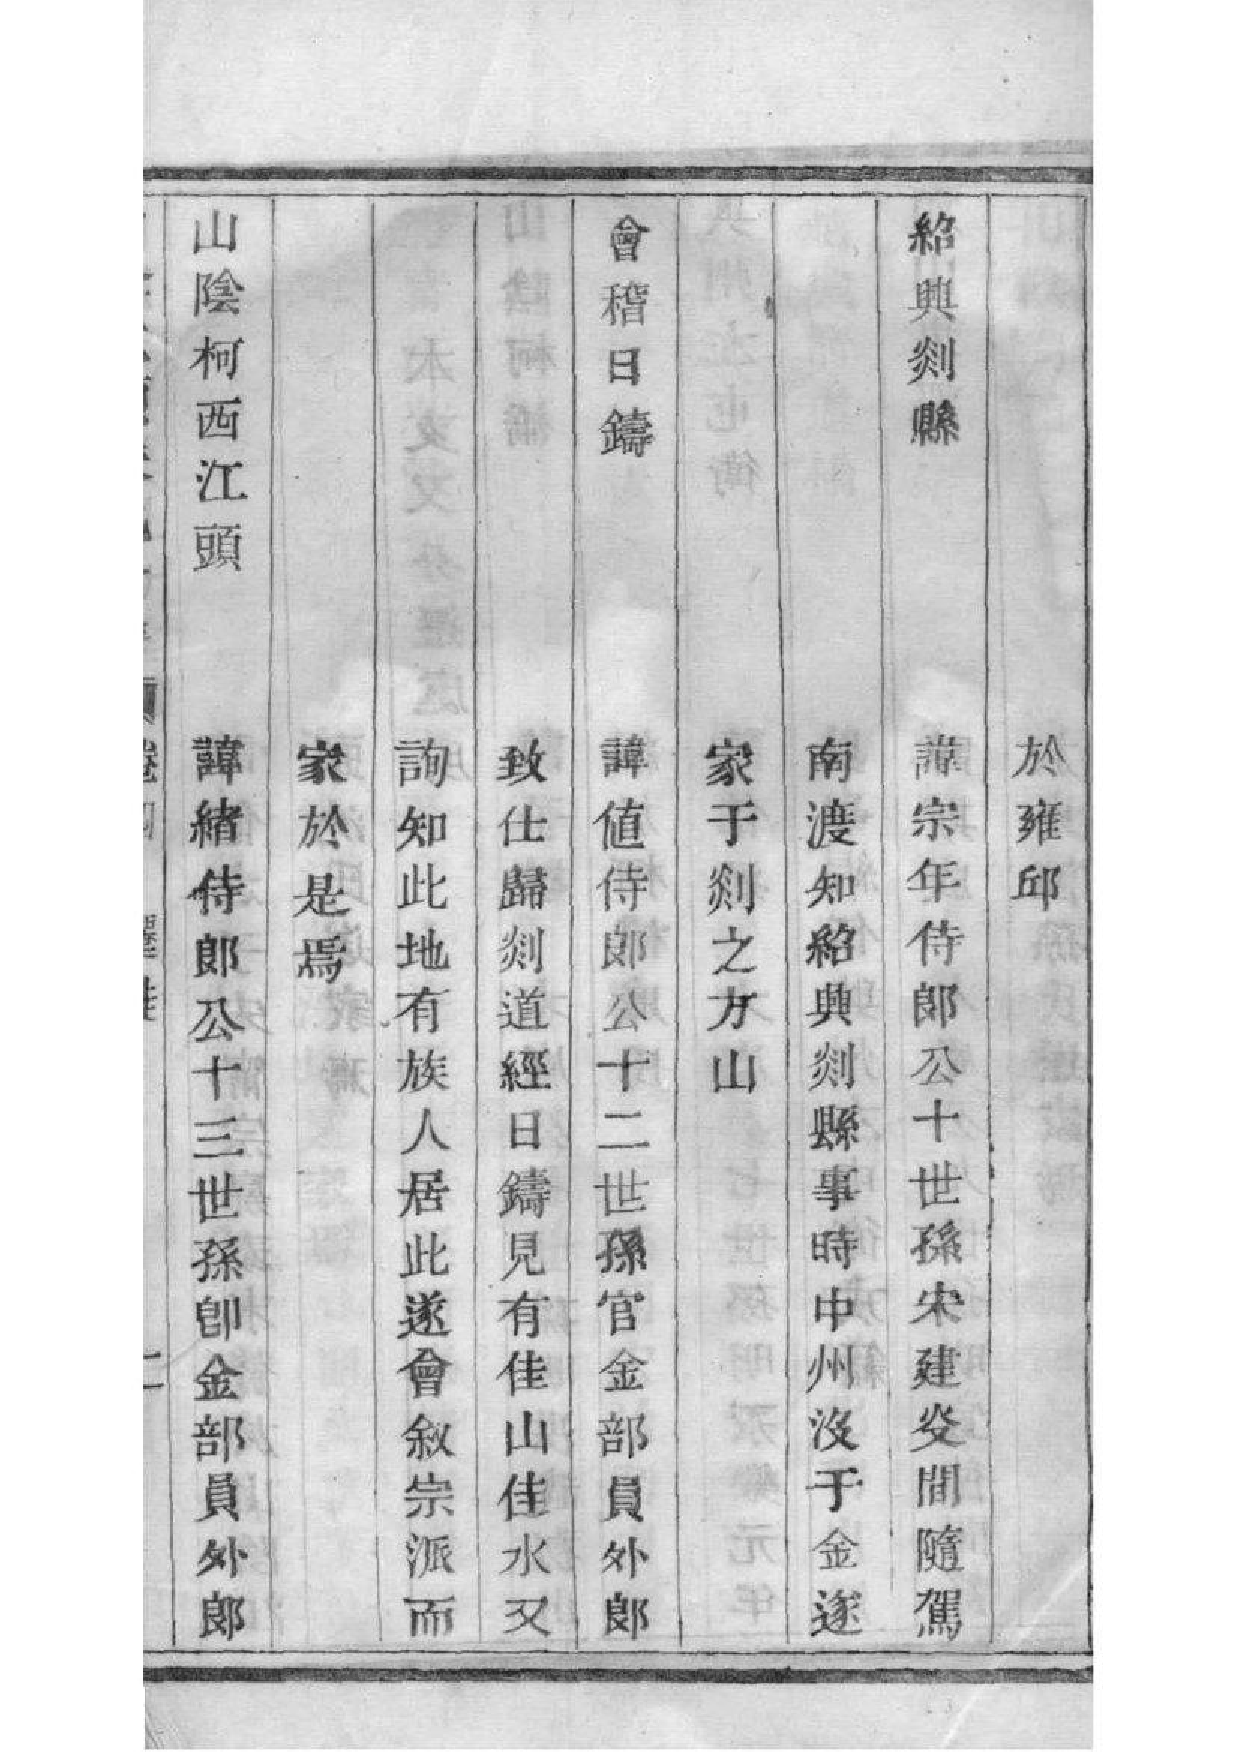 於雍邱
紹興剡縣 諱宗年侍郎公十世孫宋建炎間隨駕
南渡知紹興剡縣事時中州沒于金遂
家于剡之方山
會稽日鑄 諱値侍郎公十二世孫官金部員外郎
致仕歸剡道經日鑄見有佳山佳水又
詢知此地有族人居此遂會敘宗派而
家於是焉
山陰柯西江頭 諱緒侍郎公十三世孫卽金部員外郎